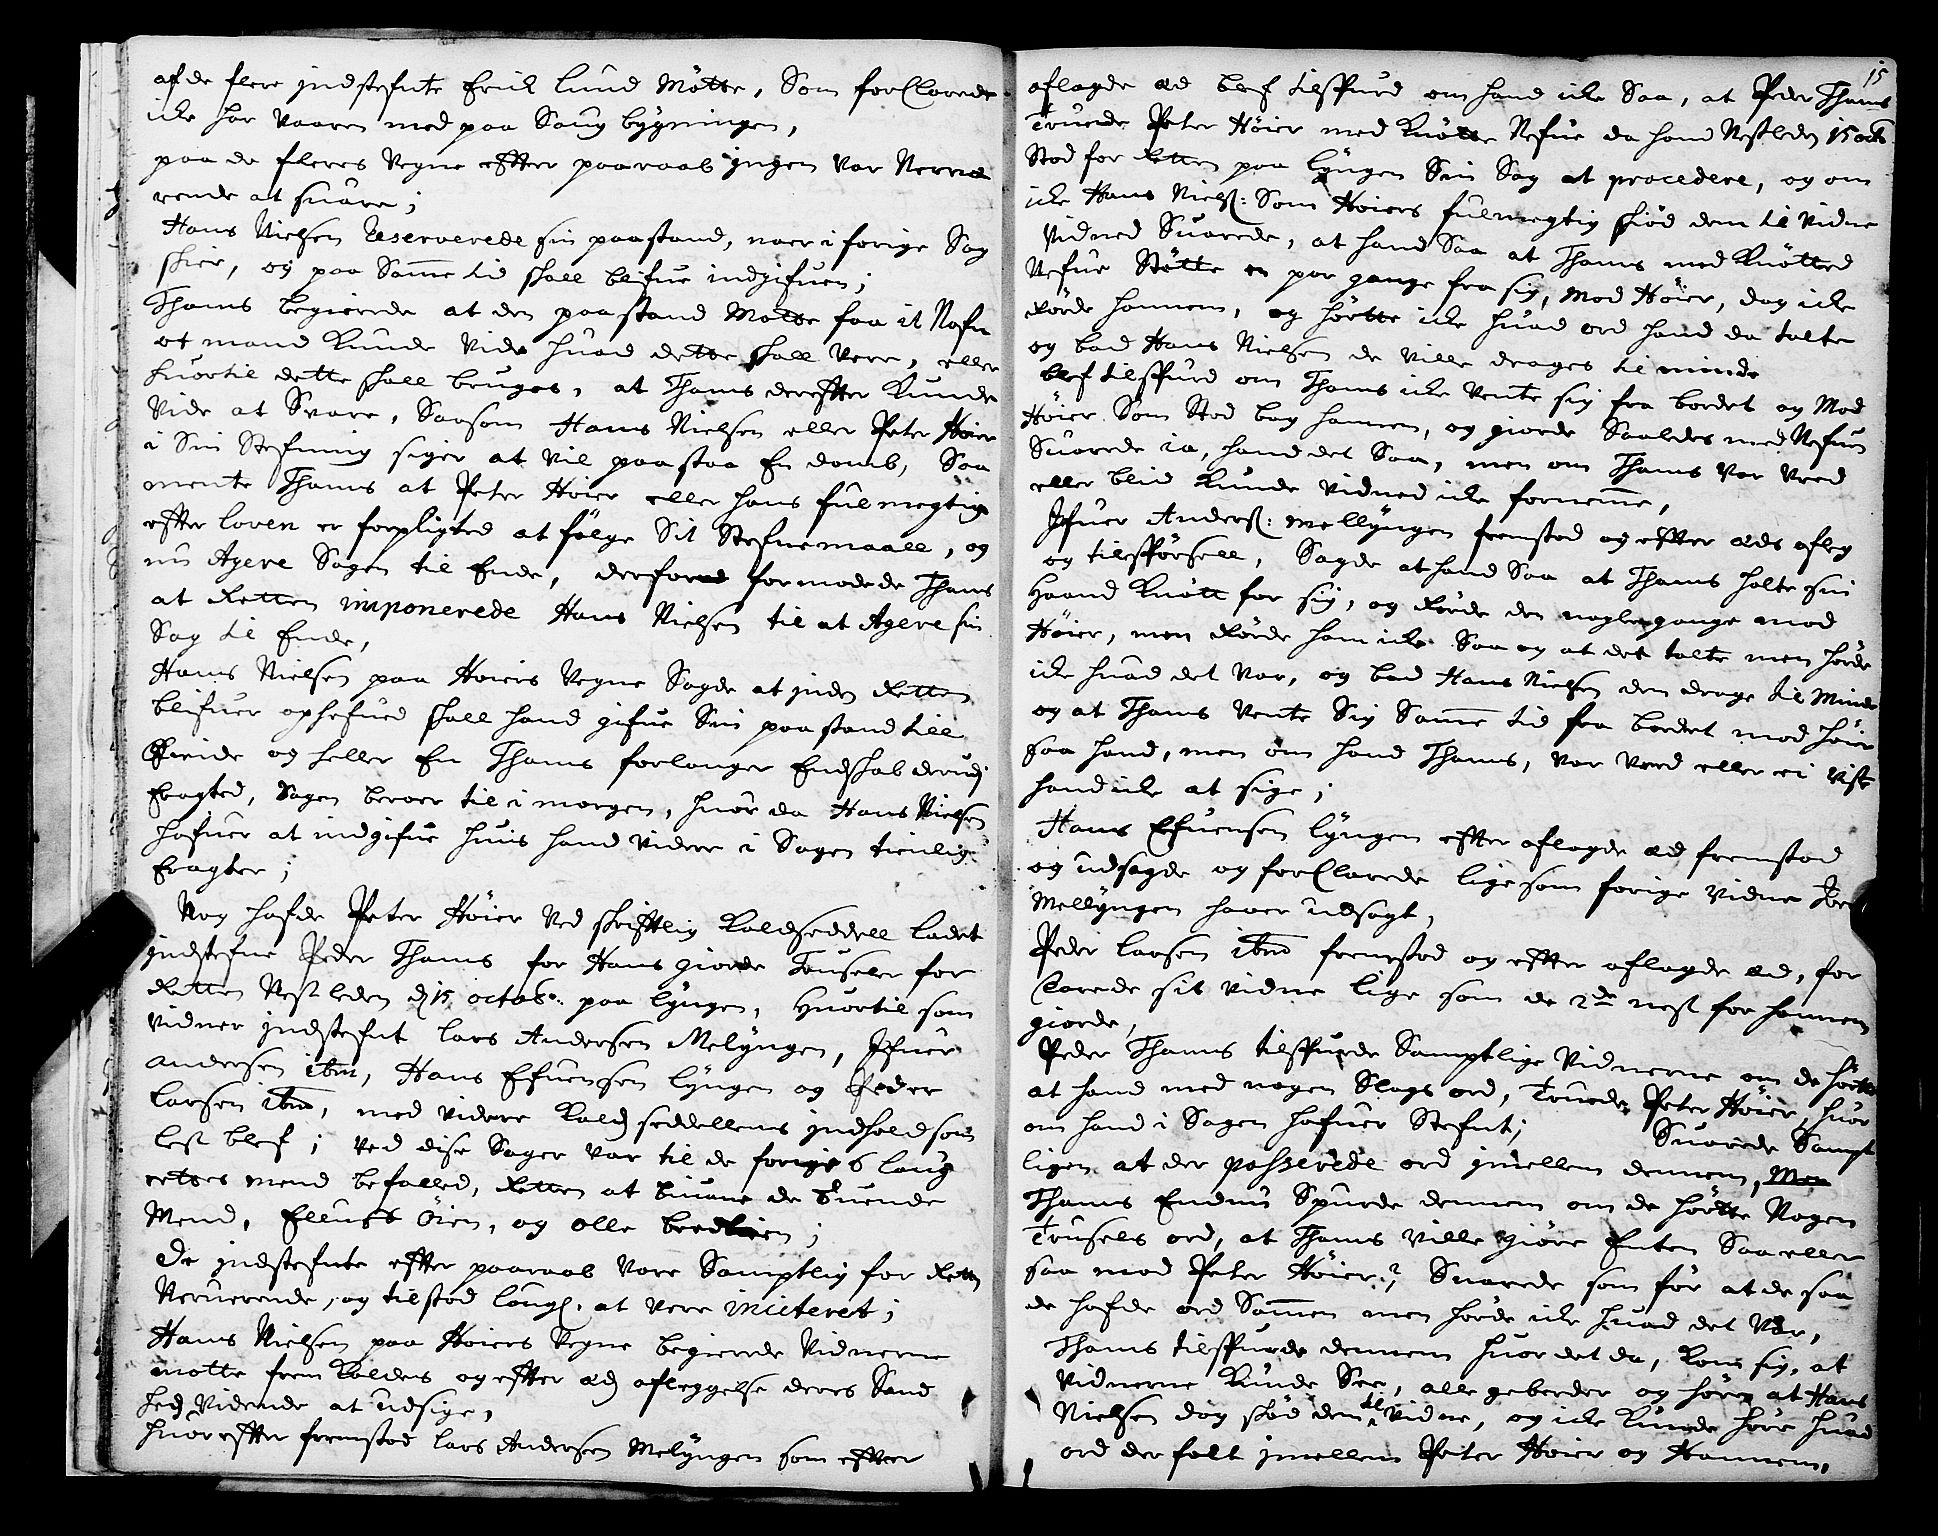 af de flere jndstefnte Erich Lund Møtte, Som forClarede
iche har vaaren med paa Saug bygningen,
paa de fleres Vegne effter paaraab jngen var Nerve
rende at suare;
Hans Nielsen Reserverede sin paastand, naer i forige Sag
skier, og paa Samme tid skall blifue indgifuen;
Thams begierede at den paastand Matte faa it Nafn
at mand Kunde Vide huad dette skall Vere, eller
huortil dette skall bruges, at Thams dereffter Kunde
Vide at Svare, Saasom Hans Nielsen eller Peter Høier
i Sin Stefning siger at vil paastaa En domb, Saa
mente Thams at Peter Høier eller hans fulmegtig
effter loven er forpligted at følge Sit Stefnemaall, og
nu Agere Sagen til Ende, derfor formodede Thams
at Retten imponerede Hans Nielsen til at Agere sin
Sag til Ende,
Hans Nielsen paa Høiers Vegne Sagde at jnden Retten
blifuer ophefued skall hand gifue Sin paastand till
kiende og heller En Thams forlanger Endskab derudj
Eragted, Sagen beroer til i morgen, huor da Hans Nielsen
hafuer at indgifue huis hand videre i Sagen tienlig
Eragter;
Nog hafde Peter Høier Ved skrifftlig Kaldseddell ladet
jndstefne Peder Thams for Hans giorde Truseler for
Retten Nest leden d 15 octob: paa Lyngen, Huortil som
vidner jndstefnt Lars Andersen Melyngen, Jfuer
Andersen ibm, Hans Efuensen Lyngen og Peder
Larsen ibm, med videre Kald seddellens jndhold som
lest blef; ved dise Sager var til de forige 6 laug
rettes mend befalled, Retten at biuane de Suende
Mend, Ellings Øien, og Olle;
De jndstefnte effter paaraab Vare Samptlig for Retten
Neruerende, og tilstod laugl: at vere inciteret;
Hans Nielsen paa Høiers Vegne begierede Vidnerne
motte frem Kaldes og effter Ed afleggelse deres Sand
hed Vidende at udsige,
huoreffter fremstod Lars Andersen Melyngen som effter
15
aflagde Ed blef tilspurd om hand iche Saa, at Peder Thams
Truede Peter Høier med Knøtte Nefue da hand Nestleden 15 octb
Stod for Retten paa Lyngen Sin Sag at procedere, og om
iche Hans Niels: Som Høiers fulmegtig skiød dem til Vidne
Vidned Suarede, at hand Saa at Thams med Knøtted
Nefue Støtte en par gange fra sig, mod Høier, dog iche
Rørde hannem, og hørtte iche huad ord hand da talte
og bad Hans Nielsen de ville drages til minde
blef tilspurd om Thams iche Vente sig fra bordet og Mod
Høier Som Stod bag hannem, og giorde Saaledes med Nefuen
Suarede ia, hand det Saa, men om Thams var Vred
eller blid Kunde vidned iche fornemme,
Jfuer Anders: Mellyngen fremstod og effter Eds afleg
og tilspørsell, Sagde at hand Saa at Thams holte sin
Haand Knøtt for sig, og Rørde den nogle gange mod
Høier, men Rørde ham iche Saa og at det talte men hørde
iche huad det var, og bad Hans Nielsen dem drage til Minde
og at Thams Vente Sig Samme tid fra bordet mod Høier
saa hand, men om hand Thams, var Vred eller ei viste
hand iche at sige;
Hans Efuensen Lyngen effter aflagde Ed fremstod
og udsagde og forClarede lige som forige vidne
Mellyngen haver udsagt,
Peder Larsen ibm fremstod og effter aflagde Ed, for
Clarede sit vidne lige som de 2de nest for hannem
giorde,
Peder Thams tilspurde Samptlige Vidnerne om de hørtte
at hand med nogen Slags ord, Truede Peter Høier, huor
om hand i Sagen hafuer Stefnt; Suarede Sampt
ligen at der passerede ord jmellem dennem,
Thams Endnu Spurde dennem om de hørtte Nogen
Trusels ord, at Thams ville giøre Enten Saa eller
saa mod Peter Høier? Suarede som før at de saa
de hafde ord Sammen men hørde iche huad det Var,
Thams tilspurde dennem huor det da, Kom sig, at
Vidnerne Kunde See, alle geberder og høre at Hans
Nielsen dog skiød dem til vidne, og iche Kunde høre huad
ord der falt jmellem Peter Høier og Hannem,